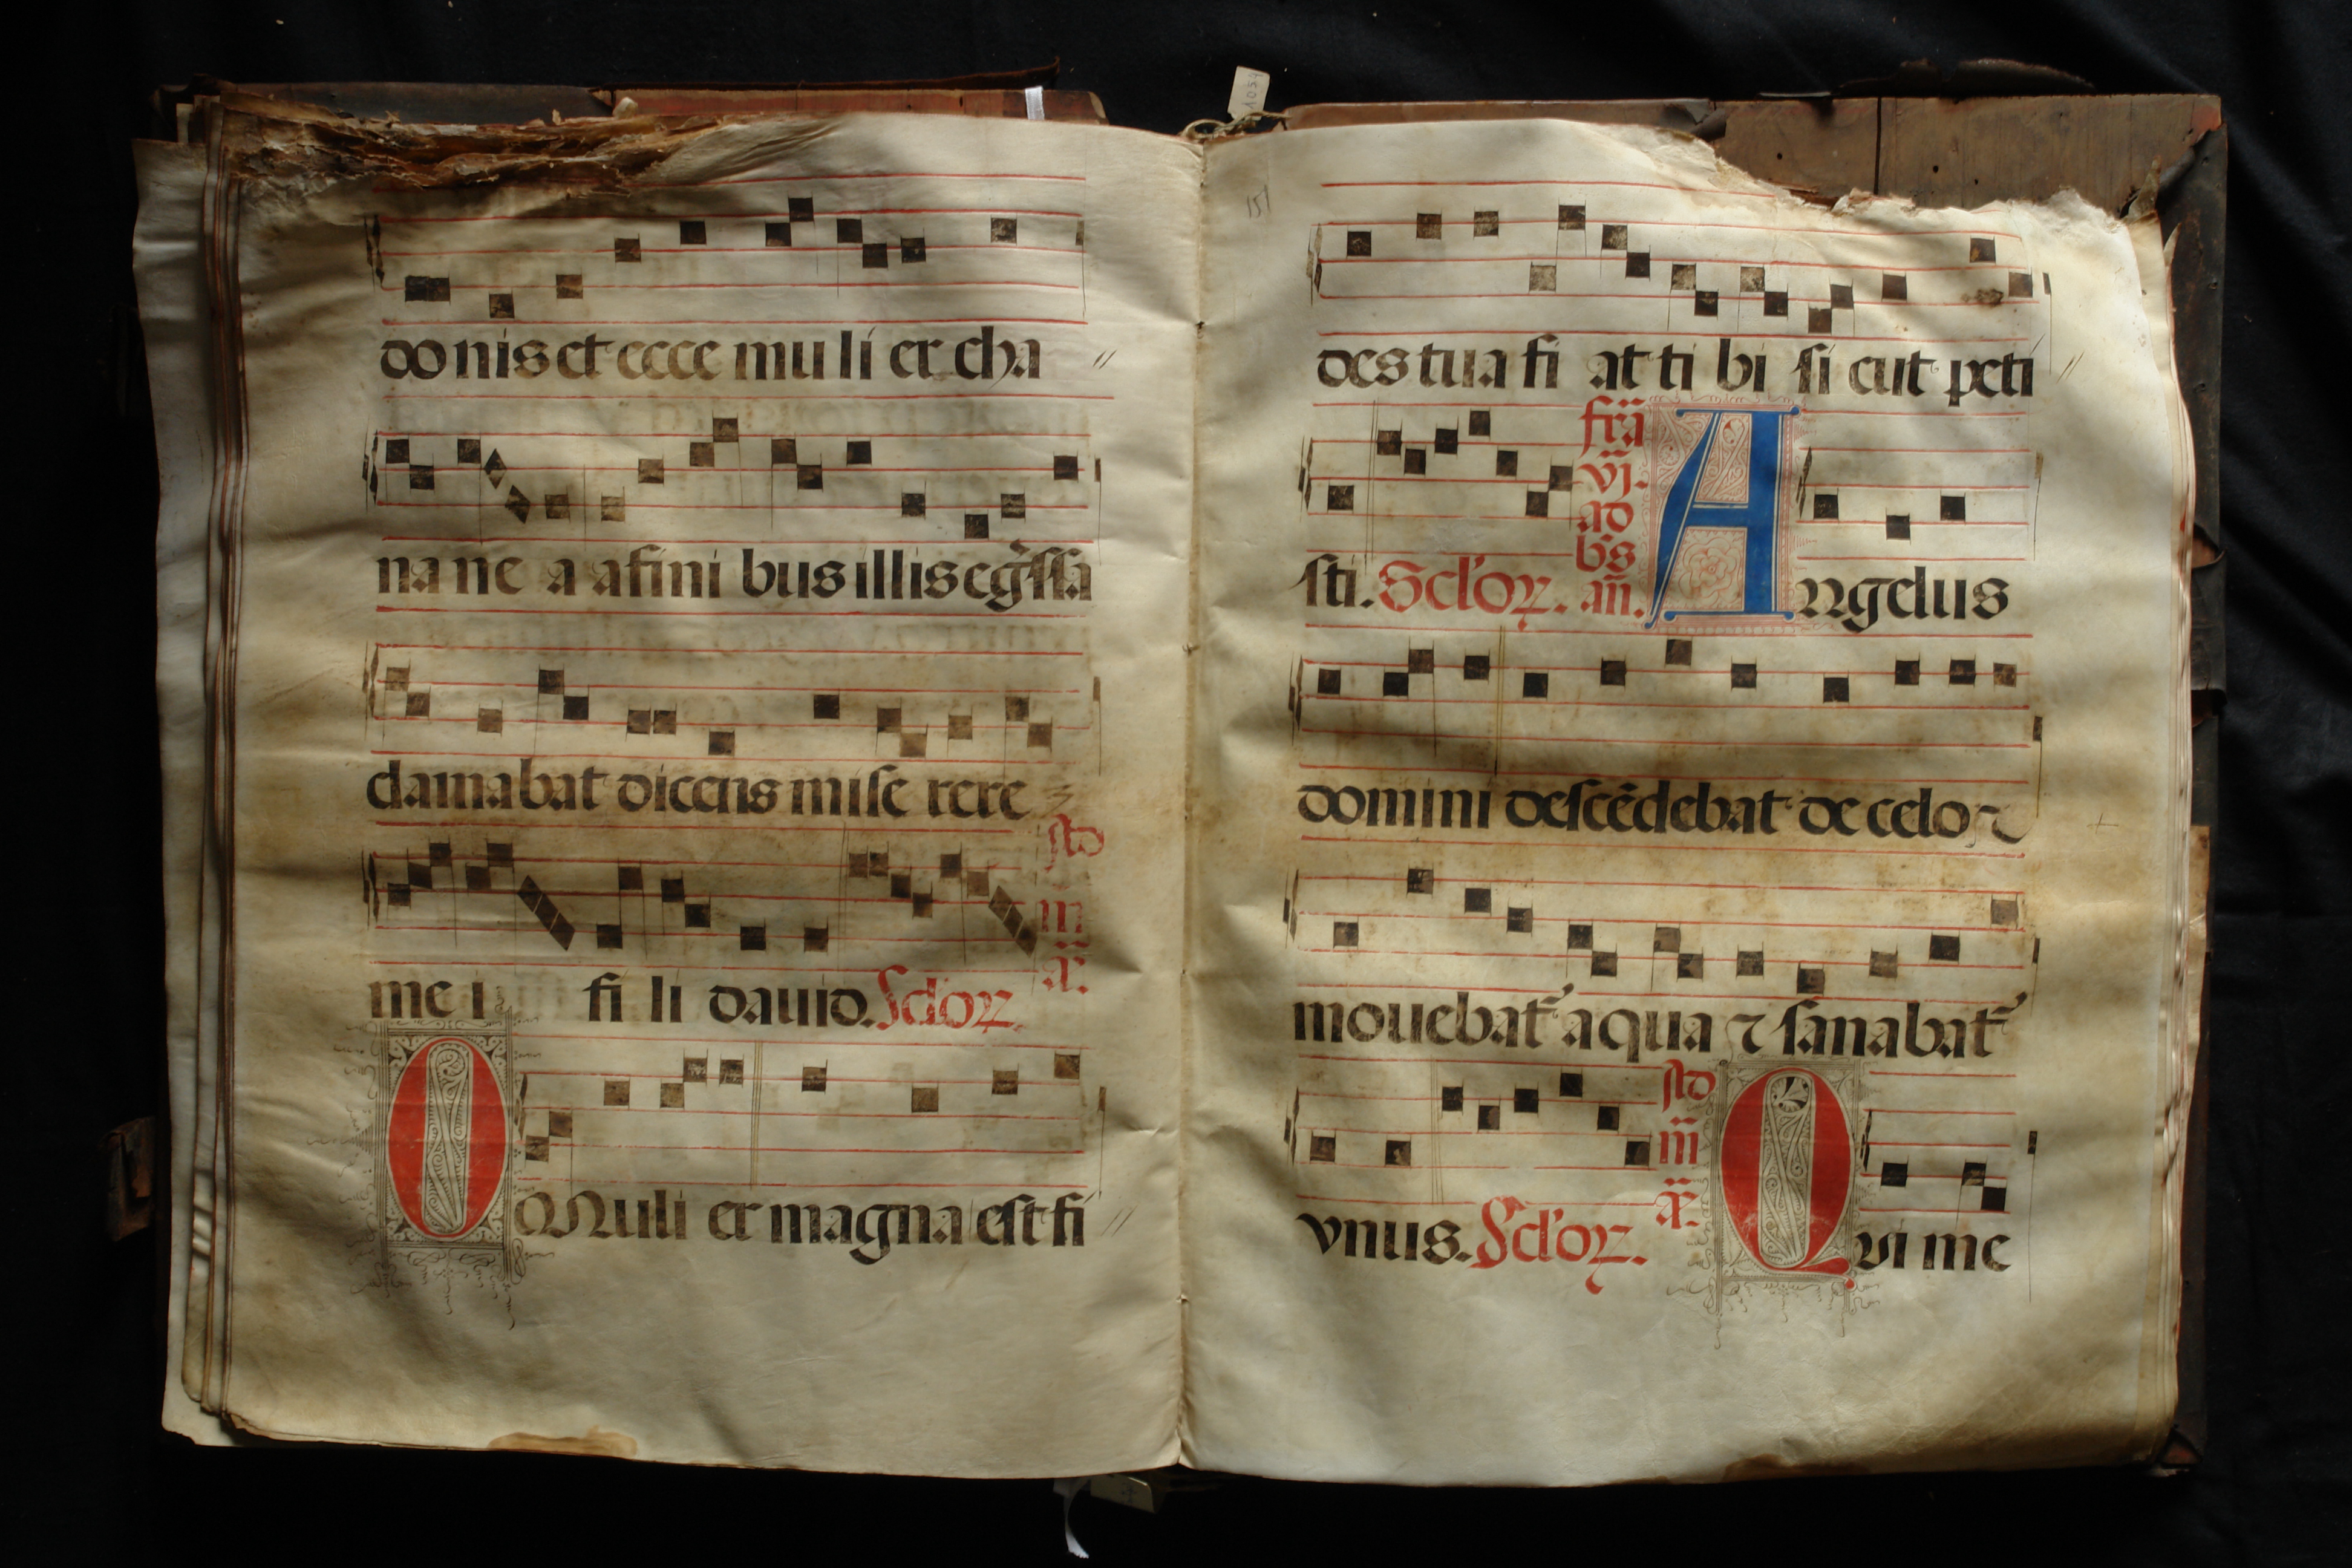 do nis et ecce mu li er cha //
na ne a a fini bus illis eg̃ssa
clamabat dicens mise rere
me i fi li david. Sclor̃.
scd
m
R̃.
O Muli er magna est fi //
151
des tua fi at ti bi si cut peti //
sti. Sclor̃.
fr̃a
vj.
ad
b's
añ.
Angelus
domini descēdebat de celo ⁊
movebat᷑ aqua ⁊ sanabat᷑
vnus. Sclor̃.
scd
m̃
R̃.
Qvi me